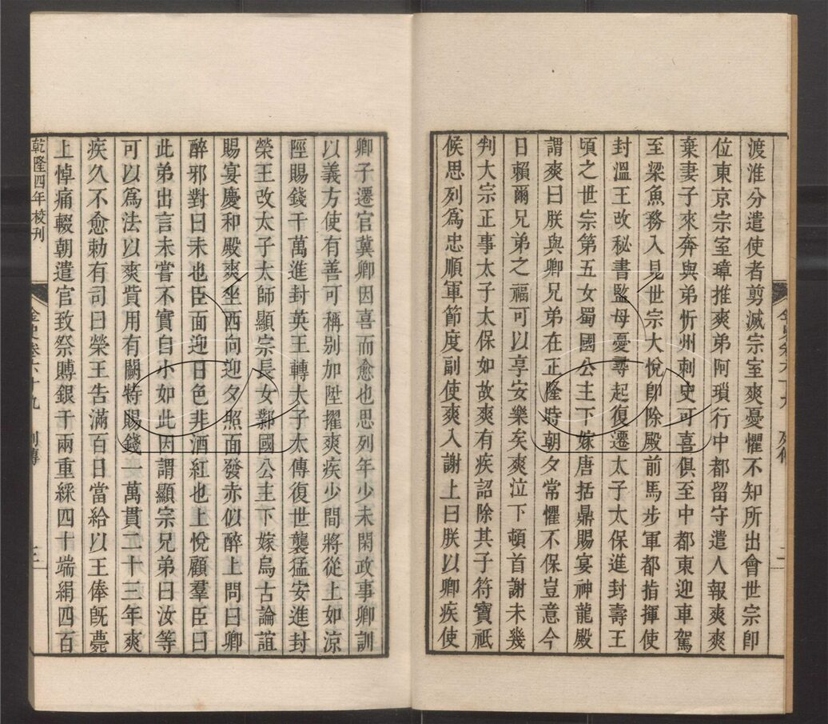 渡淮分遣使者剪滅宗室爽憂懼不知所出會世宗即
位東京宗室璋推爽弟阿瑣行中都留守遣人報爽爽
棄妻子來奔與弟忻州刺史可喜俱至中都東迎車駕
至梁魚務入見世宗大悅卽除殿前馬步軍都指揮使
封溫王改秘書監母憂尋起復遷太子太保進封壽王
頃之世宗第五女蜀國公主下嫁唐括鼎賜宴神龍殿
謂爽曰朕與卿兄弟在正隆時朝夕常懼不保豈意今
日賴爾兄弟之福可以享安樂矣爽泣下頓首謝未幾
判大宗正事太子太保如故爽有疾詔除其子符寶祗
候思列爲忠順軍節度副使爽入謝上曰朕以卿疾使
金史卷六十九 列傳 二
卿子遷官冀卿因喜而愈也思列年少未閑政事卿訓
以義方使有善可稱別加陞擢爽疾少間將從上如涼
陘賜錢千萬進封英王轉太子太傅復世襲猛安進封
榮王改太子太師顯宗長女鄴國公主下嫁烏古論誼
賜宴慶和殿爽坐西向迎夕照面發赤似醉上問曰卿
醉邪對曰未也臣面迎日色非酒紅也上悅顧羣臣曰
此弟出言未嘗不實自小如此因謂顯宗兄弟曰汝等
可以爲法以爽貲用有闕特賜錢一萬貫二十三年爽
疾久不愈勅有司曰榮王告滿百日當給以王俸旣薨
上悼痛輟朝遣官致祭賻銀千兩重綵四十端絹四百
乾隆四年校刊
金史卷六十九 列傳 三